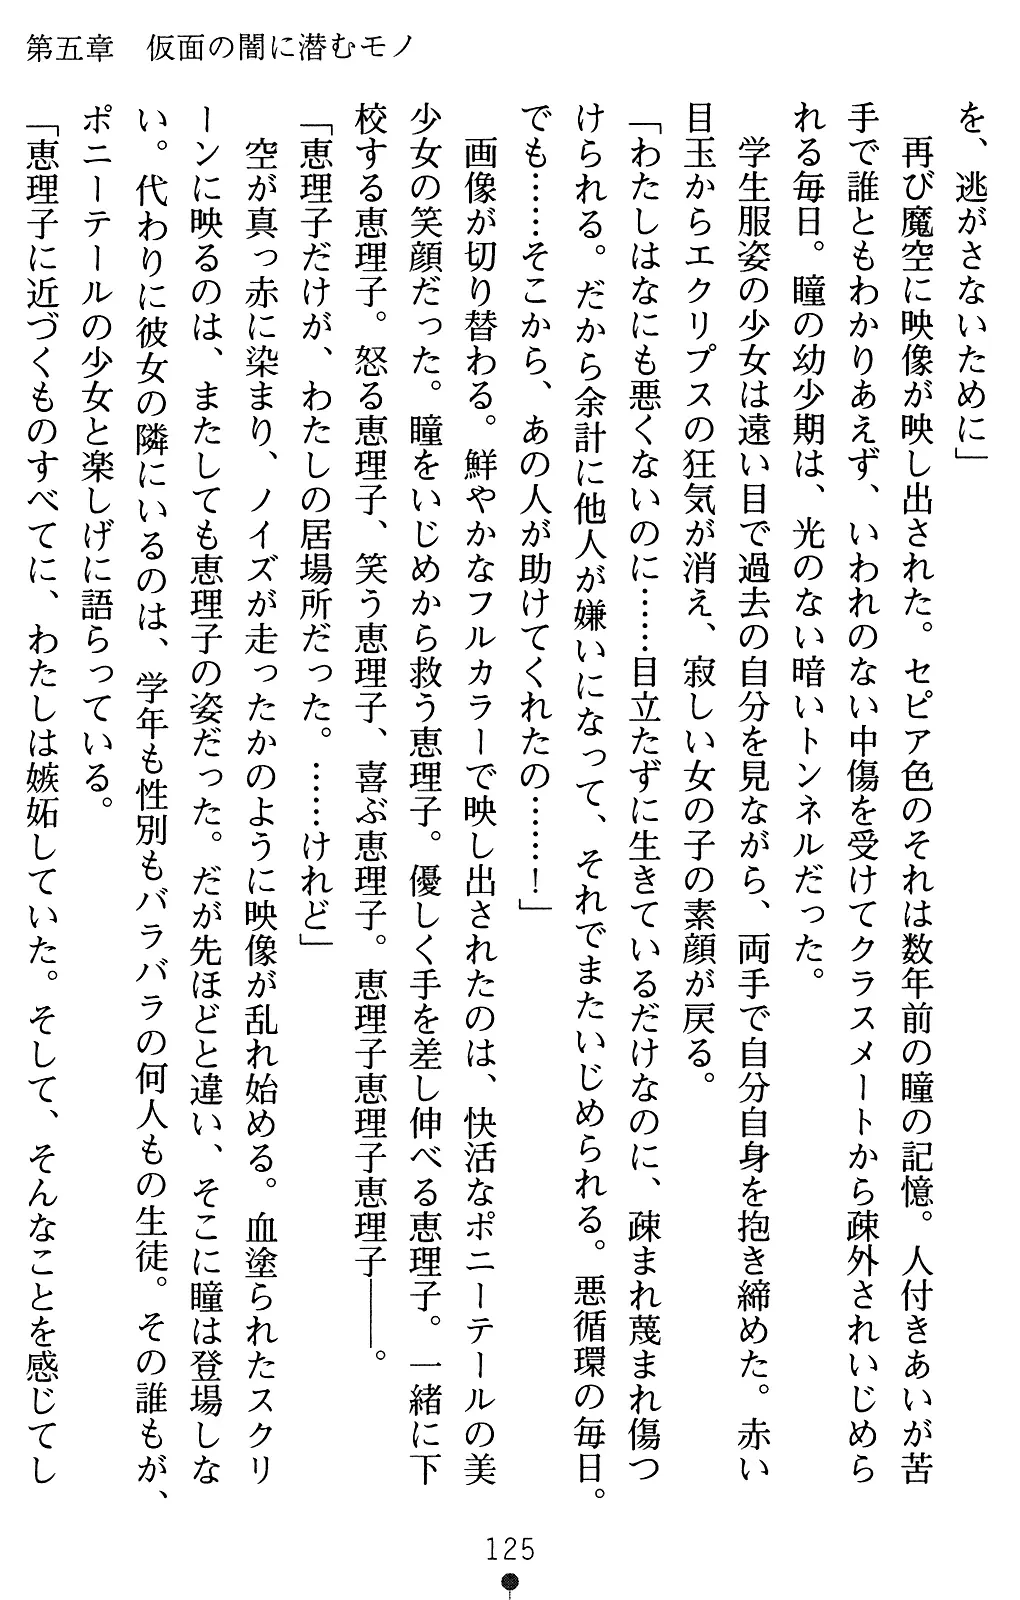 第五章　仮面の闇に潜むモノ
を、逃がさないために」
　再び魔空に映像が映し出された。セピア色のそれは数年前の瞳の記憶。人付きあいが苦
手で誰ともわかりあえず、いわれのない中傷を受けてクラスメートから疎外されいじめら
れる毎日。瞳の幼少期は、光のない暗いトンネルだった。
　学生服姿の少女は遠い目で過去の自分を見ながら、両手で自分自身を抱き締めた。赤い
目玉からエクリプスの狂気が消え、寂しい女の子の素顔が戻る。
「わたしはなにも悪くないのに……目立たずに生きているだけなのに、疎まれ蔑まれ傷つ
けられる。だから余計に他人が嫌いになって、それでまたいじめられる。悪循環の毎日。
でも……そこから、あの人が助けてくれたの……！」
　画像が切り替わる。鮮やかなフルカラーで映し出されたのは、快活なポニーテールの美
少女の笑顔だった。瞳をいじめから救う恵理子。優しく手を差し伸べる恵理子。一緒に下
校する恵理子。怒る恵理子、笑う恵理子、喜ぶ恵理子。恵理子恵理子恵理子――。
「恵理子だけが、わたしの居場所だった。……けれど」
　空が真っ赤に染まり、ノイズが走ったかのように映像が乱れ始める。血塗られたスクリ
ーンに映るのは、またしても恵理子の姿だった。だが先ほどと違い、そこに瞳は登場しな
い。代わりに彼女の隣にいるのは、学年も性別もバラバラの何人もの生徒。その誰もが、
ポニーテールの少女と楽しげに語らっている。
「恵理子に近づくものすべてに、わたしは嫉妬していた。そして、そんなことを感じてし
125